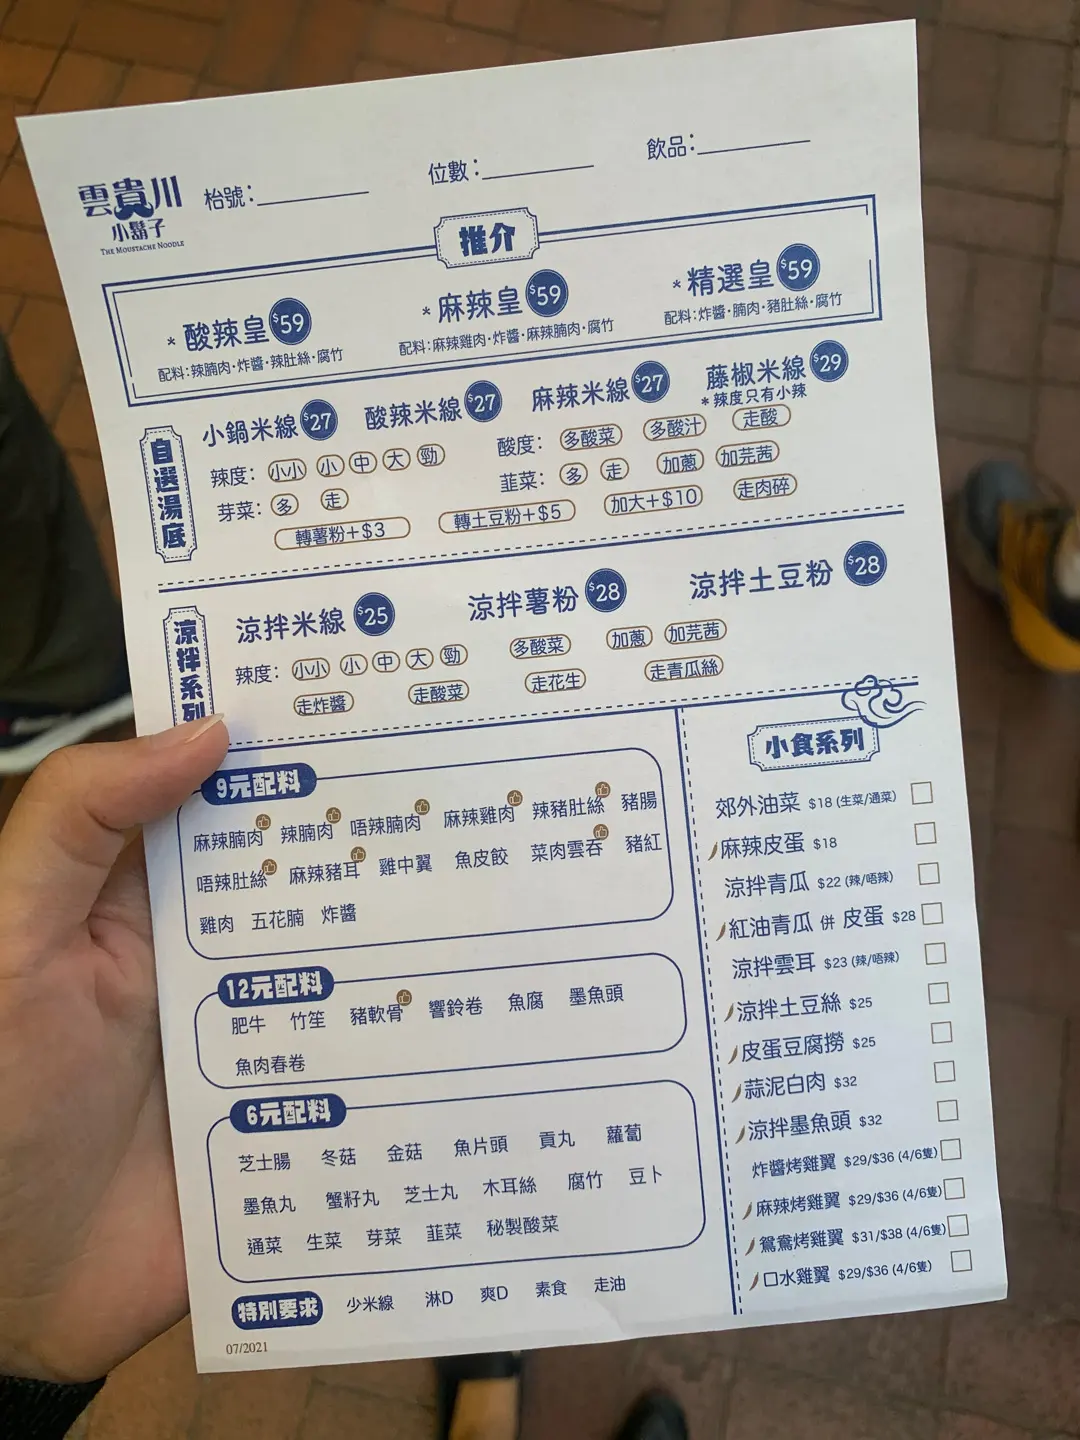 雲貴川
小鬍子
THE MOUSTACHE NOODLE
枱號：
位數：
飲品：
推介
*酸辣皇 $59
配料：辣腩肉·炸醬·辣肚絲·腐竹
*麻辣皇 $59
配料：麻辣雞肉·炸醬·麻辣腩肉·腐竹
*精選皇 $59
配料：炸醬·腩肉·豬肚絲·腐竹
自選湯底
小鍋米線 $27 酸辣米線 $27 麻辣米線 $27 藤椒米線 $29
*辣度只有小辣
辣度： 小小 小 中 大 勁 酸度： 多酸菜 多酸汁 走酸
芽菜： 多 走 韮菜： 多 走 加蔥 加芫茜
轉薯粉+$3 轉土豆粉+$5 加大+$10 走肉碎
涼拌系列
涼拌米線 $25 涼拌薯粉 $28 涼拌土豆粉 $28
辣度： 小小 小 中 大 勁 多酸菜 加蔥 加芫茜
走炸醬 走酸菜 走花生 走青瓜絲
9元配料
麻辣腩肉 辣腩肉 唔辣腩肉 麻辣雞肉 辣豬肚絲 豬腸
唔辣肚絲 麻辣豬耳 雞中翼 魚皮餃 菜肉雲吞 豬紅
雞肉 五花腩 炸醬
12元配料
肥牛 竹笙 豬軟骨 響鈴卷 魚腐 墨魚頭
魚肉春卷
6元配料
芝士腸 冬菇 金菇 魚片頭 貢丸 蘿蔔
墨魚丸 蟹籽丸 芝士丸 木耳絲 腐竹 豆卜
通菜 生菜 芽菜 韮菜 秘製酸菜
特別要求 少米線 淋D 爽D 素食 走油
07/2021
小食系列
郊外油菜 $18 (生菜/通菜)
麻辣皮蛋 $18
涼拌青瓜 $22 (辣/唔辣)
紅油青瓜 併 皮蛋 $28
涼拌雲耳 $23 (辣/唔辣)
涼拌土豆絲 $25
皮蛋豆腐撈 $25
蒜泥白肉 $32
涼拌墨魚頭 $32
炸醬烤雞翼 $29/$36 (4/6隻)
麻辣烤雞翼 $29/$36 (4/6隻)
鴛鴦烤雞翼 $31/$38 (4/6隻)
口水雞翼 $29/$36 (4/6隻)